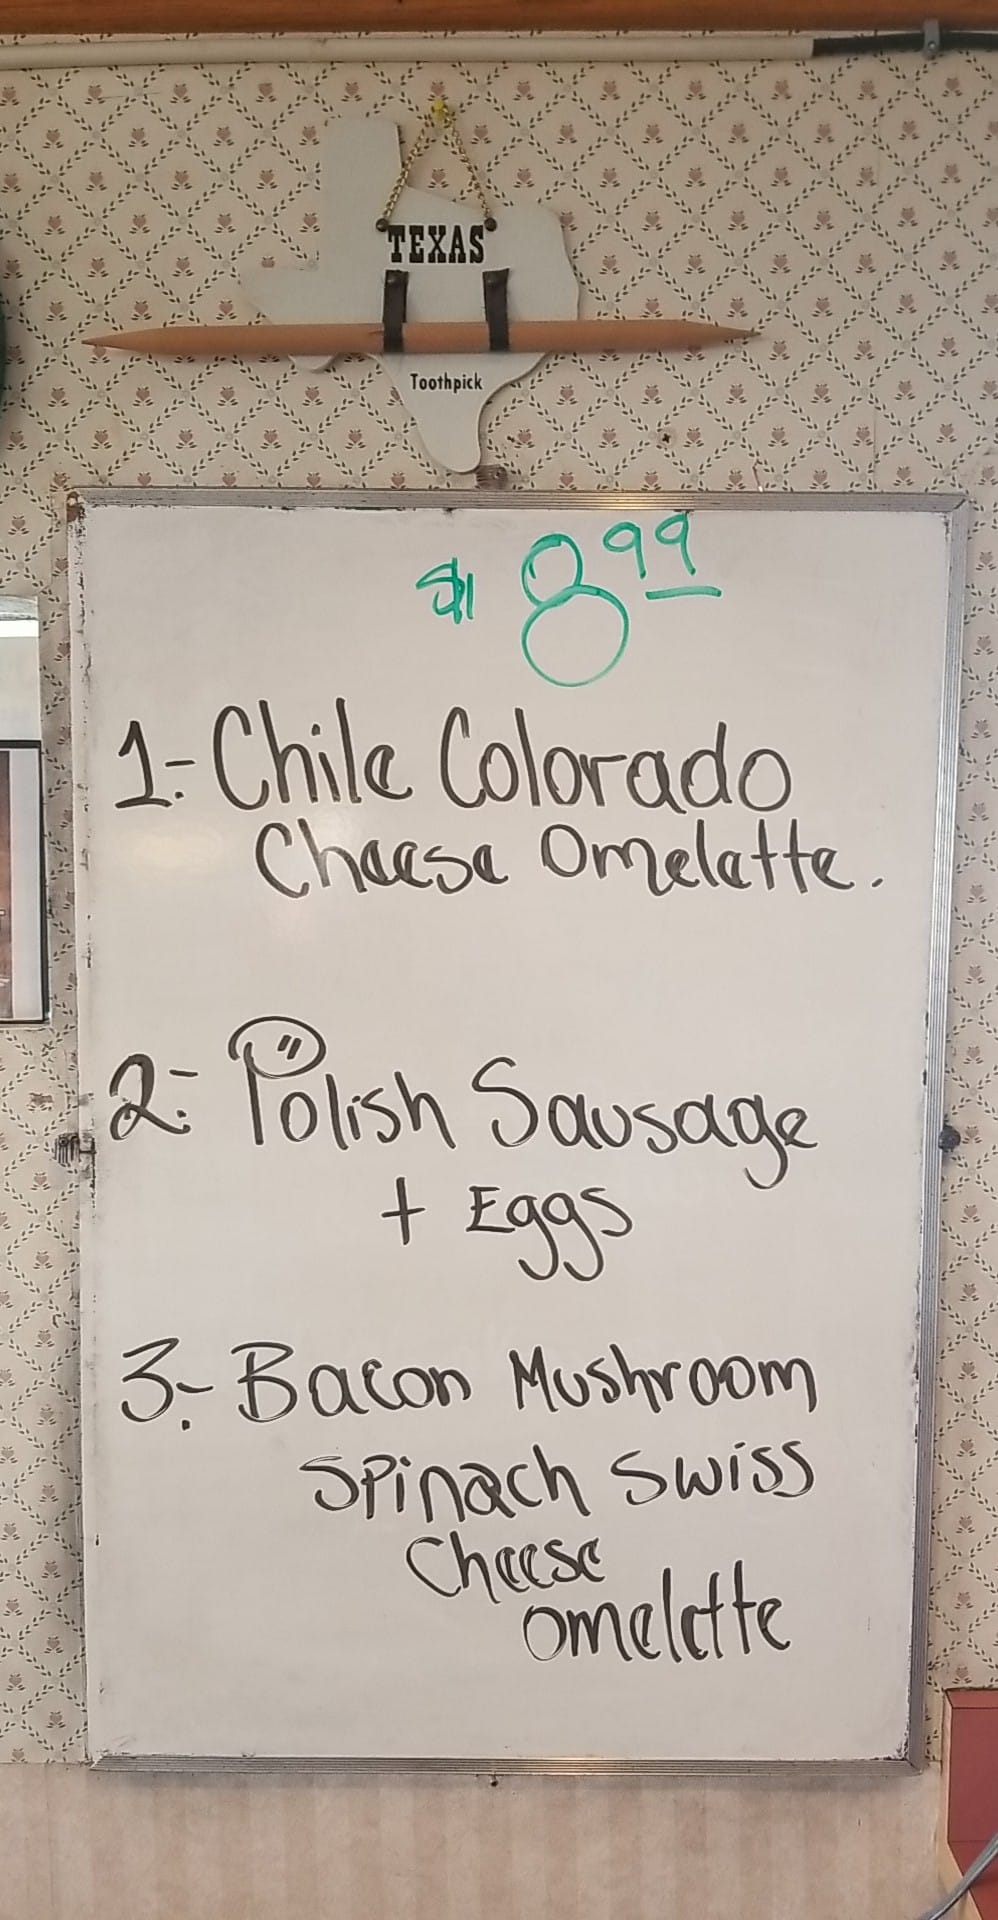 TEXAS
Toothpick
$8.99
1.- Chile Colorado
Cheese Omelette.
2.- Polish Sausage
+ Eggs
3.- Bacon Mushroom
Spinach Swiss
Cheese
omelette